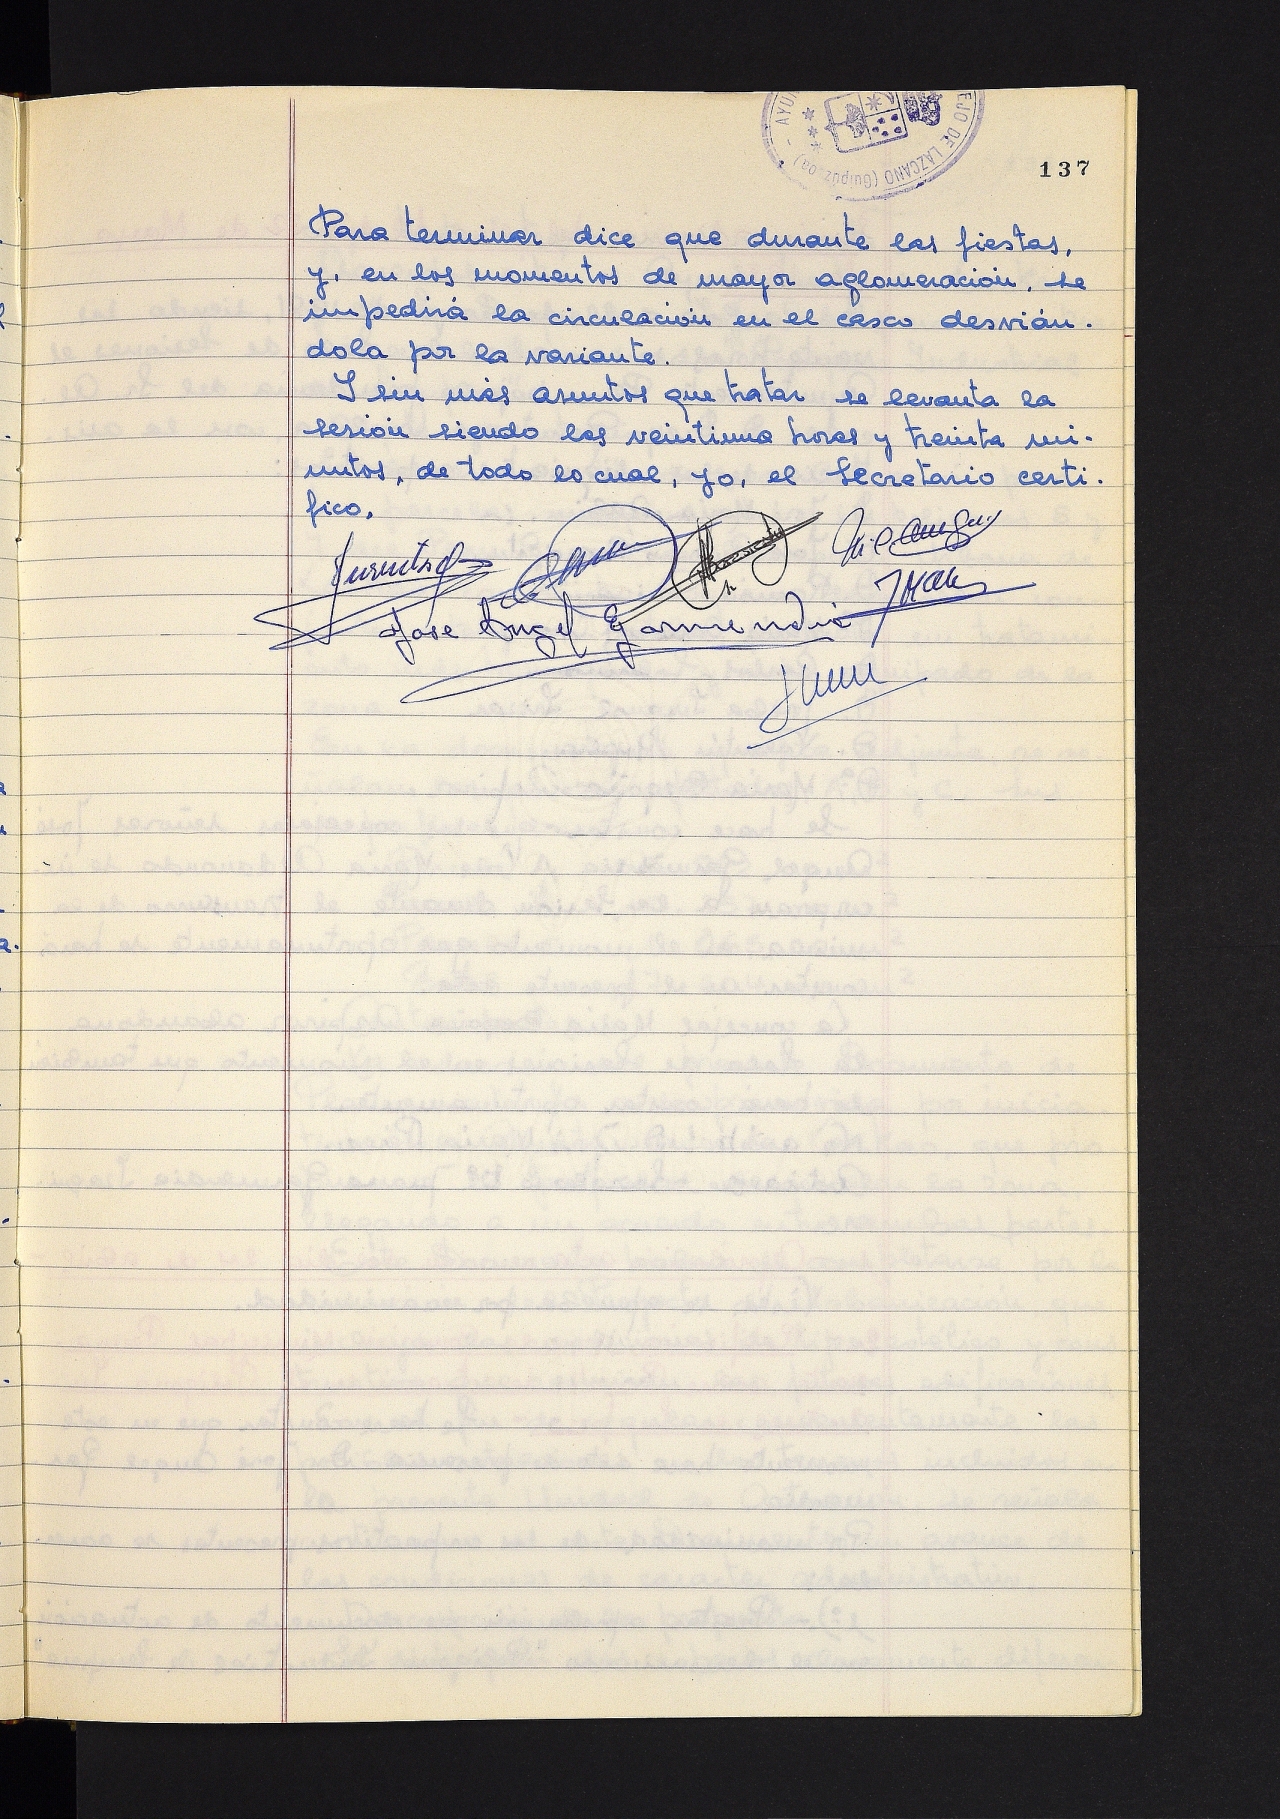 EJO DE LAZCANO (Guipúzcoa) - AYUN
137
Para terminar dice que durante las fiestas,
y, en los momentos de mayor aglomeración, se
impedirá la circulación en el casco desvián.
dola por la variante.
Y sin más asuntos que tratar se levanta la
sesión siendo las veintiuna horas y treinta mi.
nutos, de todo lo cual, yo, el Secretario certi.
fico.
Jose Angel Garmendia